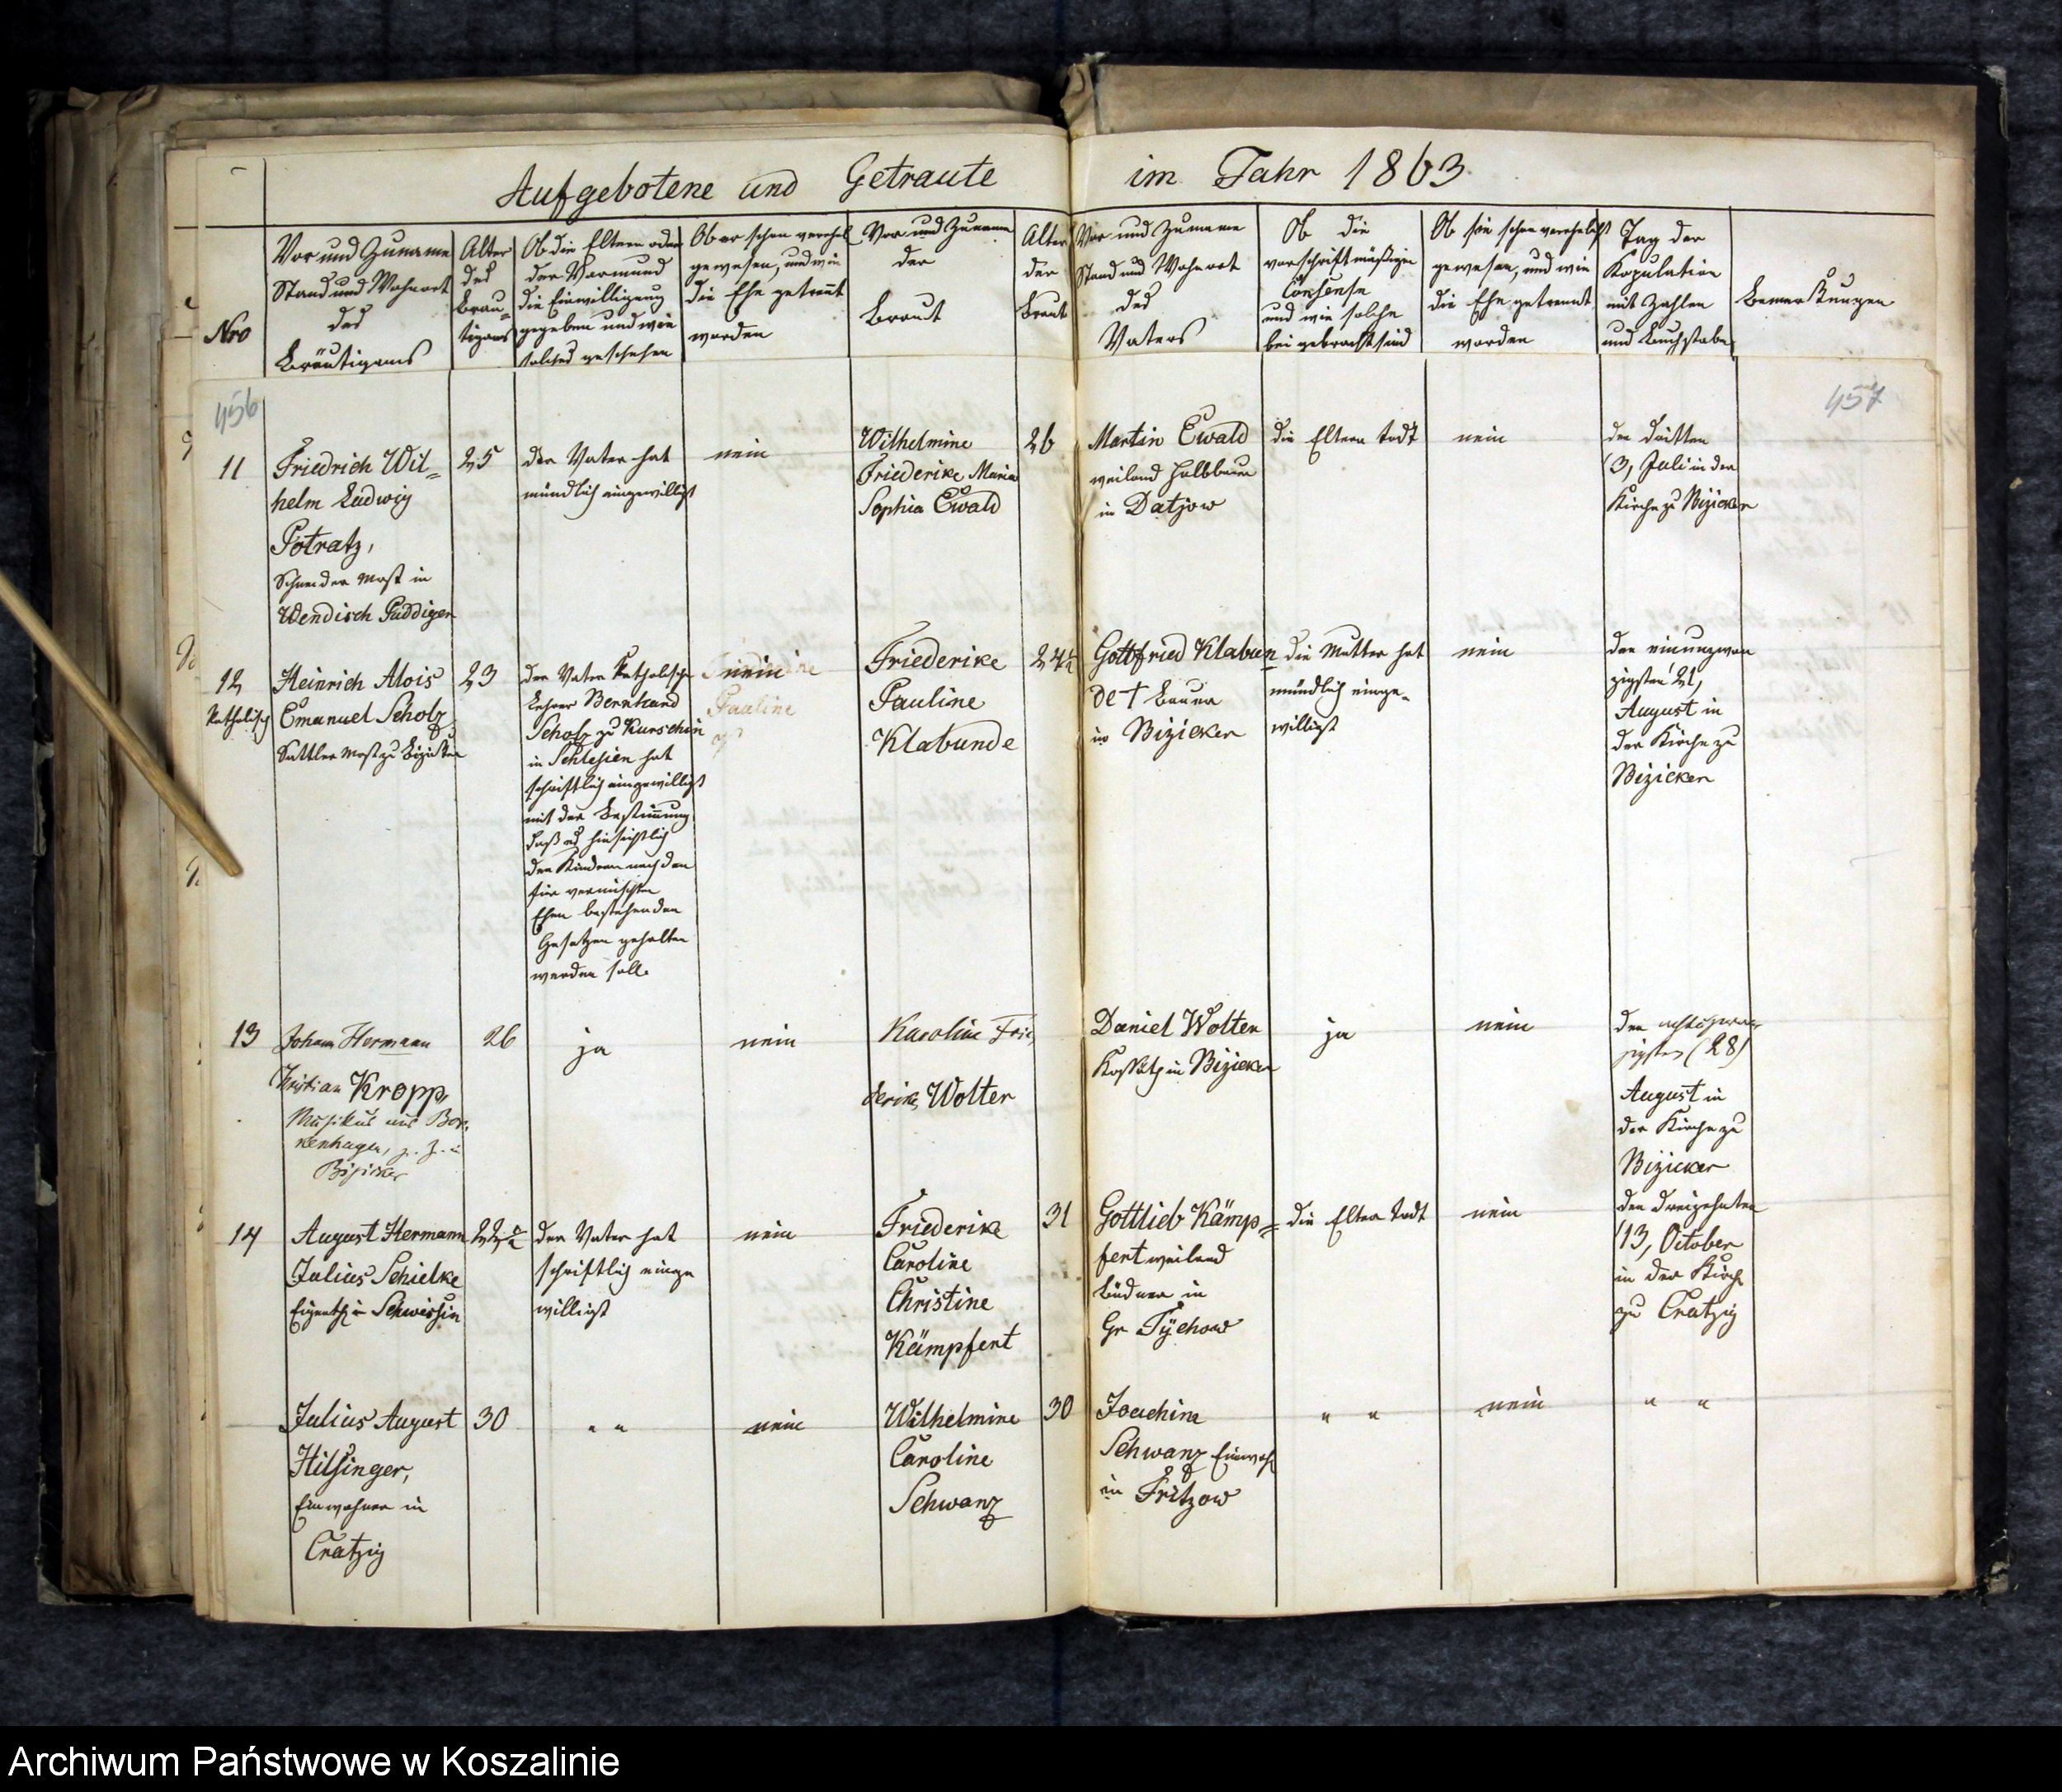 Aufgebotene und Getraute im Jahr 1863.
Nro
Vor und Zuname
Stand und Wohnort
des
Bräutigams
Alter
des
Bräu-
tigams
Ob die Eltern oder
der Vormund
die Einwilligung
gegeben und wie
solches geschehen
Ob er schon verehel
gewesen, und wie
die Ehe getrennt
worden
Vor und Zuname
der
Braut
Alter
der
Braut
Vor und Zuname
Stand und Wohnort
des
Vaters
Ob die
vorschriftmäßigen
Consense
und wie solche
beigebracht sind
Ob sie schon verehelicht
gewesen, und wie
die Ehe getrennt
worden
Tag der
Kopulation
mit Zahlen
und Buchstaben
Bemerkungen
456
457
11
Friedrich Wil=
helm Ludwig
Potratz,
Schneider Mstr in
Wendisch Puddiger
25
der Vater hat
mündlich eingewilligt
nein
Wilhelmine
Friederike Maria
Sophia Ewald
26
Martin Ewald
weiland Halbbauer
in Datjow
die Eltern todt
nein
den dritten
(3, Juli in der
Kirche zu Bizicker
12
katholisch
Heinrich Alois
Emanuel Scholz
Sattler Mstr zu Bizicker
23
der Vater katholischer
Lehrer Bernhard
Scholz zu Kurschin
in Schlesien hat
schriftlich eingewilligt
mit der Bestimmung
daß es hinsichtlich
der Kinder nach den
für vermischten
Ehen bestehenden
Gesetzen gehalten
werden soll.
nein
Pauline
Friederike
Pauline
Klabunde
24½
Gottfried Klabun
de † Bauer
in Bizicker
die Mutter hat
mündlich einge-
willigt
nein
den einundzwan
zigsten 21,
August in
der Kirche zu
Bizicker
13
Johann Hermann
Christian Kropp,
Musikus aus Bor,
kenhagen, z. Z. in
Bizicker
26
ja
nein
Karoline Frie,
derike Wolter
Daniel Wolter
Kossäth in Bizicker
ja
nein
den achtundzwan
zigsten (28)
August in
der Kirche zu
Bizicker
14
August Hermann
Julius Schielke
Eigenth in Schwessin
22½
der Vater hat
schriftlich einge
willigt
nein
Friederike
Caroline
Christine
Kämpfert
31
Gottlieb Kämp=
fert weiland
Büdner in
Gr Tÿchow
die Eltern todt
nein
den dreizehnten
(13, October
in der Kirche
zu Cratzig
Julius August
Hilsinger,
Einwohner in
Cratzig
30
" "
nein
Wilhelmine
Caroline
Schwanz
30
Joachim
Schwanz Einwoh
in Fritzow
" "
nein
" "
Archiwum Państwowe w Koszalinie